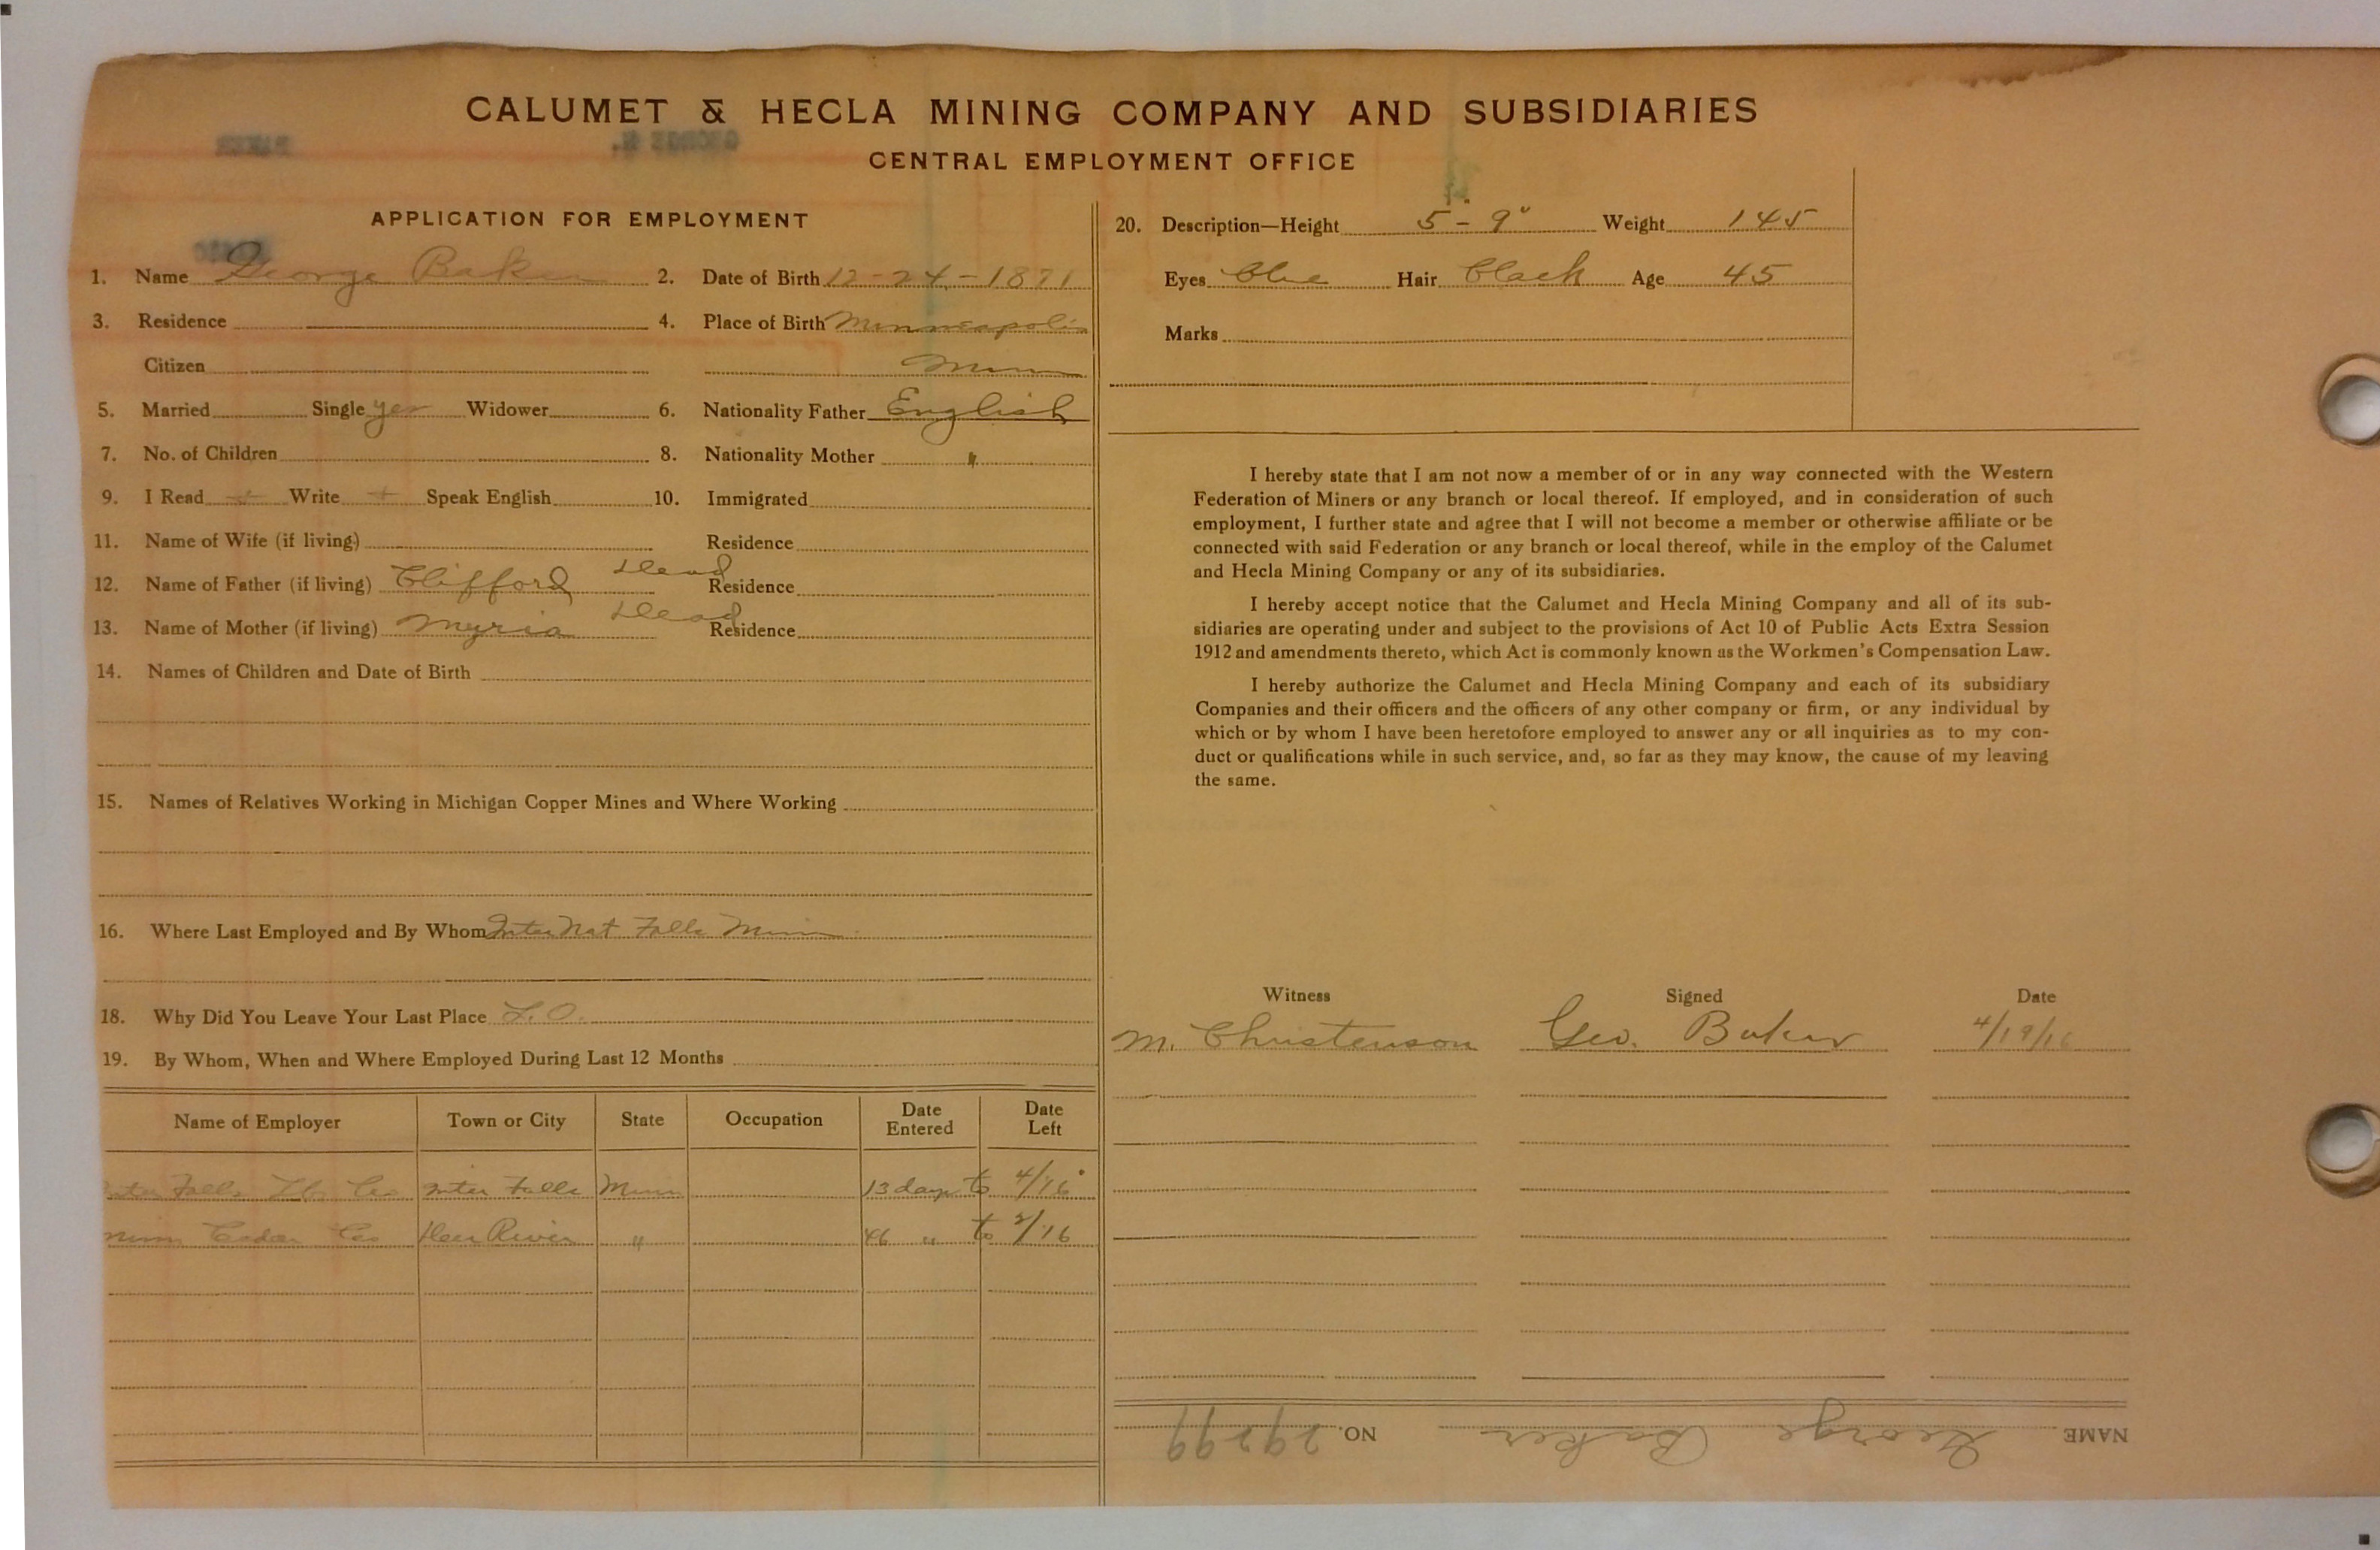 CALUMET & HECLA MINING COMPANY AND SUBSIDIARIES
CENTRAL EMPLOYMENT OFFICE
APPLICATION FOR EMPLOYMENT
1. Name George Baker 2. Date of Birth 12-24-1871
3. Residence 4. Place of Birth Minneapolis
Citizen Minn
5. Married Single yes Widower 6. Nationality Father English
7. No. of Children 8. Nationality Mother "
9. I Read + Write + Speak English 10. Immigrated
11. Name of Wife (if living) Residence
12. Name of Father (if living) Clifford Dead Residence
13. Name of Mother (if living) Myria Dead Residence
14. Names of Children and Date of Birth
15. Names of Relatives Working in Michigan Copper Mines and Where Working
16. Where Last Employed and By Whom Inter Nat Falls Minn
18. Why Did You Leave Your Last Place L.O.
19. By Whom, When and Where Employed During Last 12 Months
Name of Employer Town or City State Occupation Date Entered Date Left
Inter Falls Lb. Co Inter Falls Minn 13 days to 4/16
Minn Cedar Co Deer River " 46 " to 2/16
20. Description—Height 5-9" Weight 145
Eyes blue Hair black Age 45
Marks
I hereby state that I am not now a member of or in any way connected with the Western
Federation of Miners or any branch or local thereof. If employed, and in consideration of such
employment, I further state and agree that I will not become a member or otherwise affiliate or be
connected with said Federation or any branch or local thereof, while in the employ of the Calumet
and Hecla Mining Company or any of its subsidiaries.
I hereby accept notice that the Calumet and Hecla Mining Company and all of its sub-
sidiaries are operating under and subject to the provisions of Act 10 of Public Acts Extra Session
1912 and amendments thereto, which Act is commonly known as the Workmen's Compensation Law.
I hereby authorize the Calumet and Hecla Mining Company and each of its subsidiary
Companies and their officers and the officers of any other company or firm, or any individual by
which or by whom I have been heretofore employed to answer any or all inquiries as to my con-
duct or qualifications while in such service, and, so far as they may know, the cause of my leaving
the same.
Witness Signed Date
M. Christenson Geo. Baker 4/19/16
NAME George Baker NO. 29299